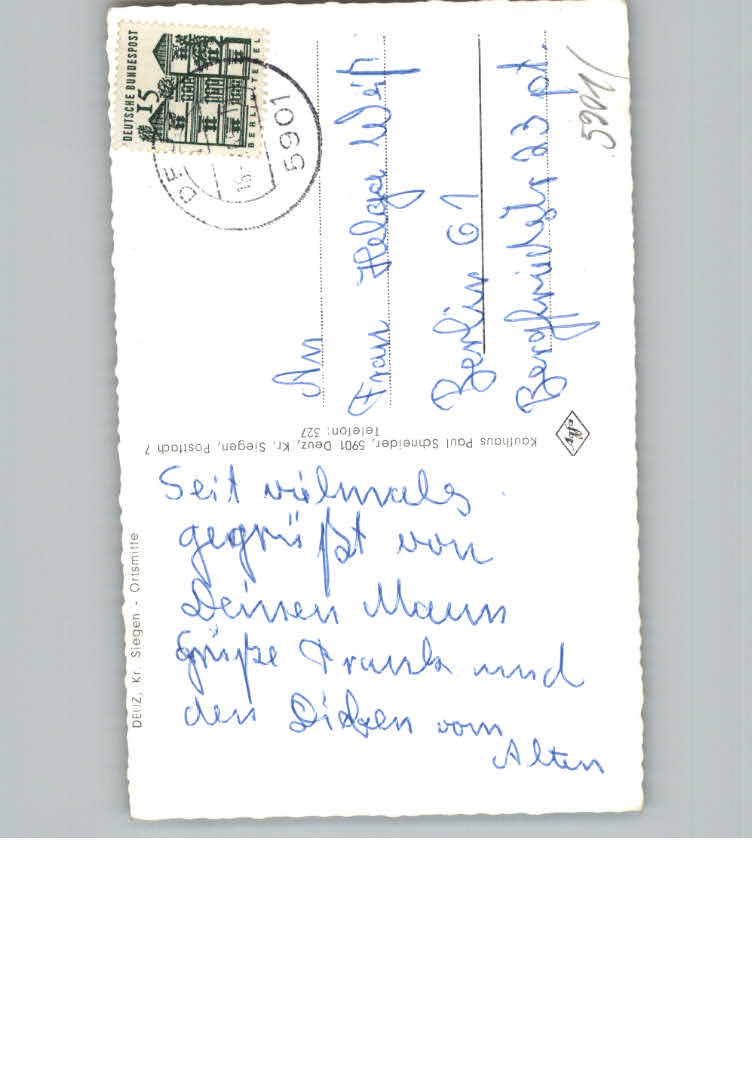 Seit vielmals
gegrüßt von
Deinen Mann
Grüße Frank und
den Dicken vom
Alten
An
Frau Helga Weiß
Berlin 61
23 pt.
5901/
DEUTSCHE BUNDESPOST
15
BERLIN/TEGEL
5901
Kaufhaus Paul Schneider, 5901 Deuz, Kr. Siegen, Postfach 7
Telefon: 327
DEUZ, Kr. Siegen - Ortsmitte